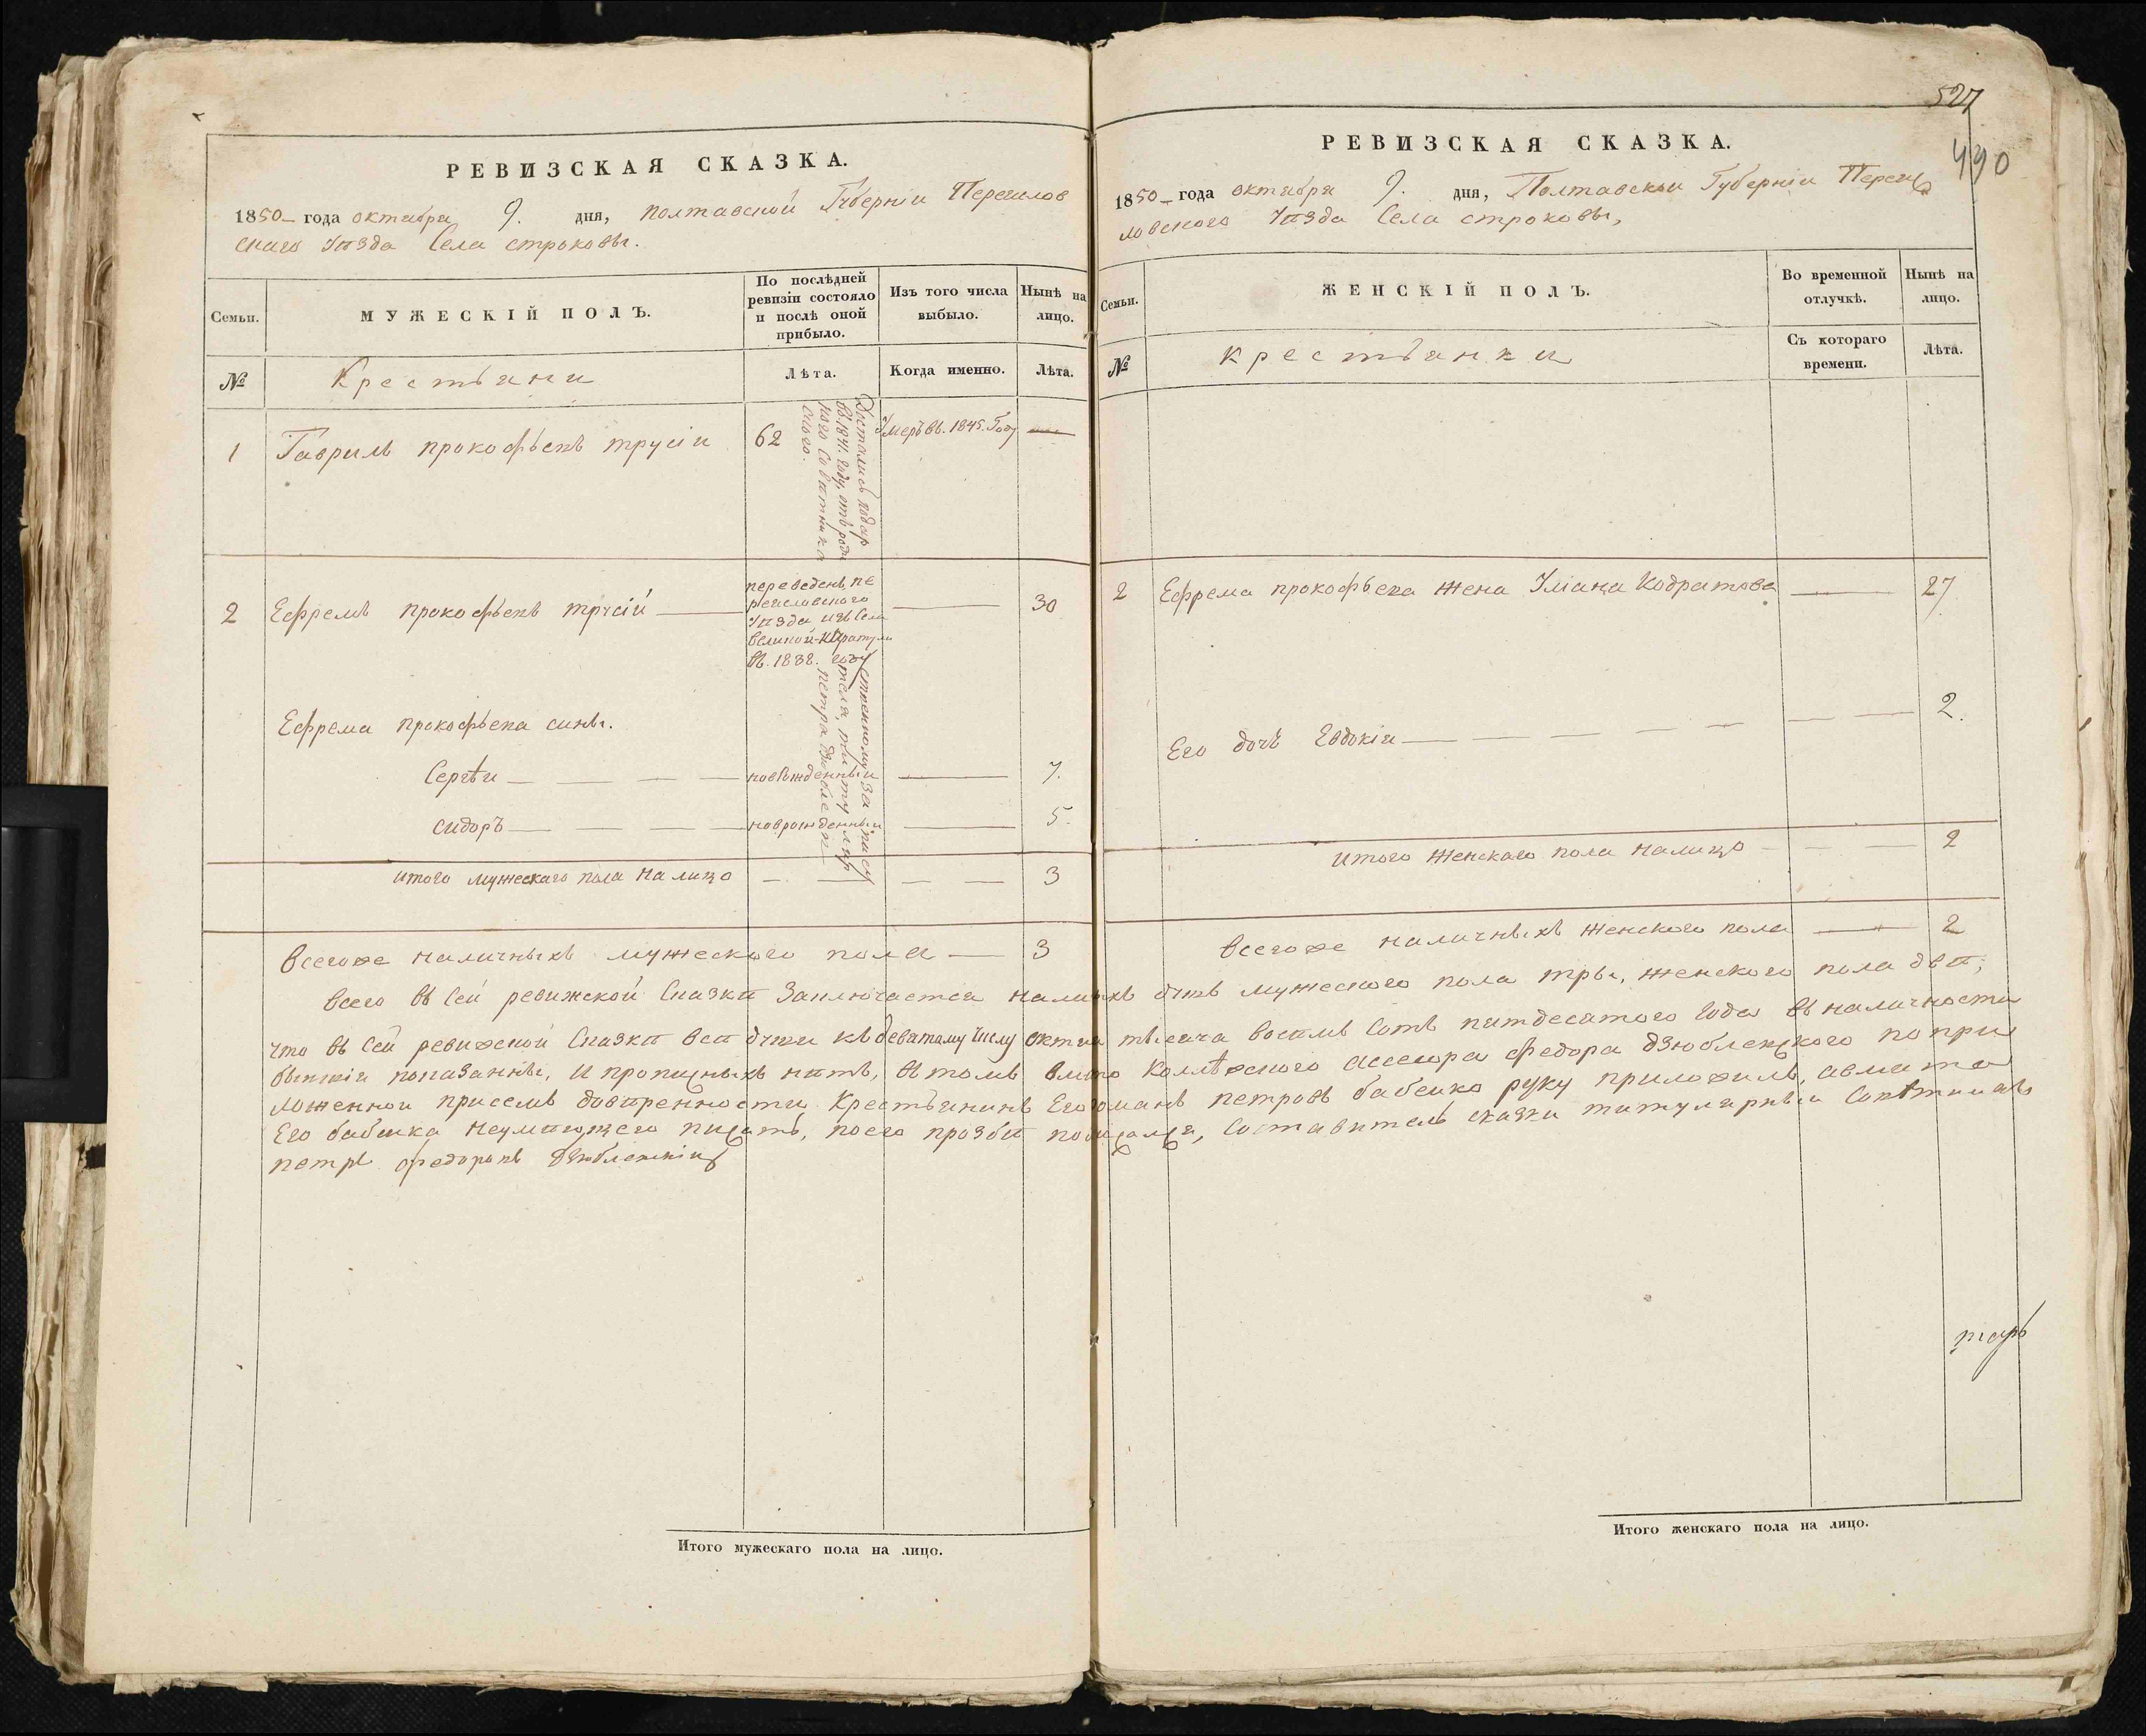 527
490
РЕВИЗСКАЯ СКАЗКА.
1850 года октября 9. дня, полтавской Губерніи Переяслов
скаго Уѣзда Села строковы.
Семьи.
МУЖЕСКІЙ ПОЛЪ.
По послѣдней
ревизіи состояло
и послѣ оной
прибыло.
Изъ того числа
выбыло.
Нынѣ на
лицо.
№
Крестьяни
Лѣта.
Когда именно.
Лѣта.
1 Гаврилъ прокофьевъ трусій 62 Умеръ въ 1845. Году —
Достались
въ 1841. году, отъ родн
наго Совѣтника
2 Ефремъ прокофьевъ трусій — 30
переведенъ, пе
реяславского
Уѣзда, изъ Села
великой-Каратули
въ. 1838. году
Ефрема прокофьева сины.
Сергѣи — новорожденный — 7.
сидоръ — новрожденный — 5.
итого мужескаго пола на лицо — 3
всегоже наличныхъ мужеского пола — 3
РЕВИЗСКАЯ СКАЗКА.
1850 года октября 9. дня, Полтавской Губерніи Переяс
ловского Уѣзда Села строковы,
Семьи.
ЖЕНСКІЙ ПОЛЪ.
Во временной
отлучкѣ.
Нынѣ на
лицо.
№
крестьянки
Съ котораго
времени.
Лѣта.
2 Ефрема прокофьева жена Уліана Кодратова — 27
Его дочь Евдокія — 2.
итого женскаго пола налицо — 2
всегоже наличныхъ женского пола — 2
всего въ Сей ревижской Сказкѣ Заключается душъ мужеского пола тры, женского пола двѣ;
что въ Сей ревижской Сказкѣ всѣ души къ девятому числу тысяча восемъ Сотъ пятдесятого года въ наличности
показанны, и пропущныхъ нѣтъ, въ томъ Коллѣжского ассесора федора дзюблевского по при
ложенной присемъ довѣренности Крестьянинъ Его романъ петровъ бабенко руку приложилъ, авмѣсто
Его бабенка неумѣющего писать, поего прозбѣ Составитель сказки титулярный Совѣтникъ
петръ федоровъ Дзюблевскій
Итого мужескаго пола на лицо.
Итого женскаго пола на лицо.